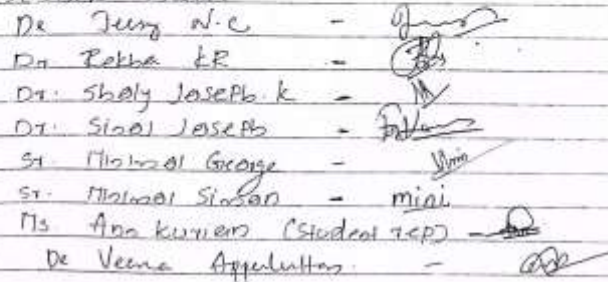 De Jessy N.C -
Dr Rekha KR -
Dr. Shaly Joseph. K -
Dr. Sinoi Joseph -
Sr. Minimol George -
Sr. Minimol Simson - mini
Ms Ann Kurien (Student rep) -
De Veena -